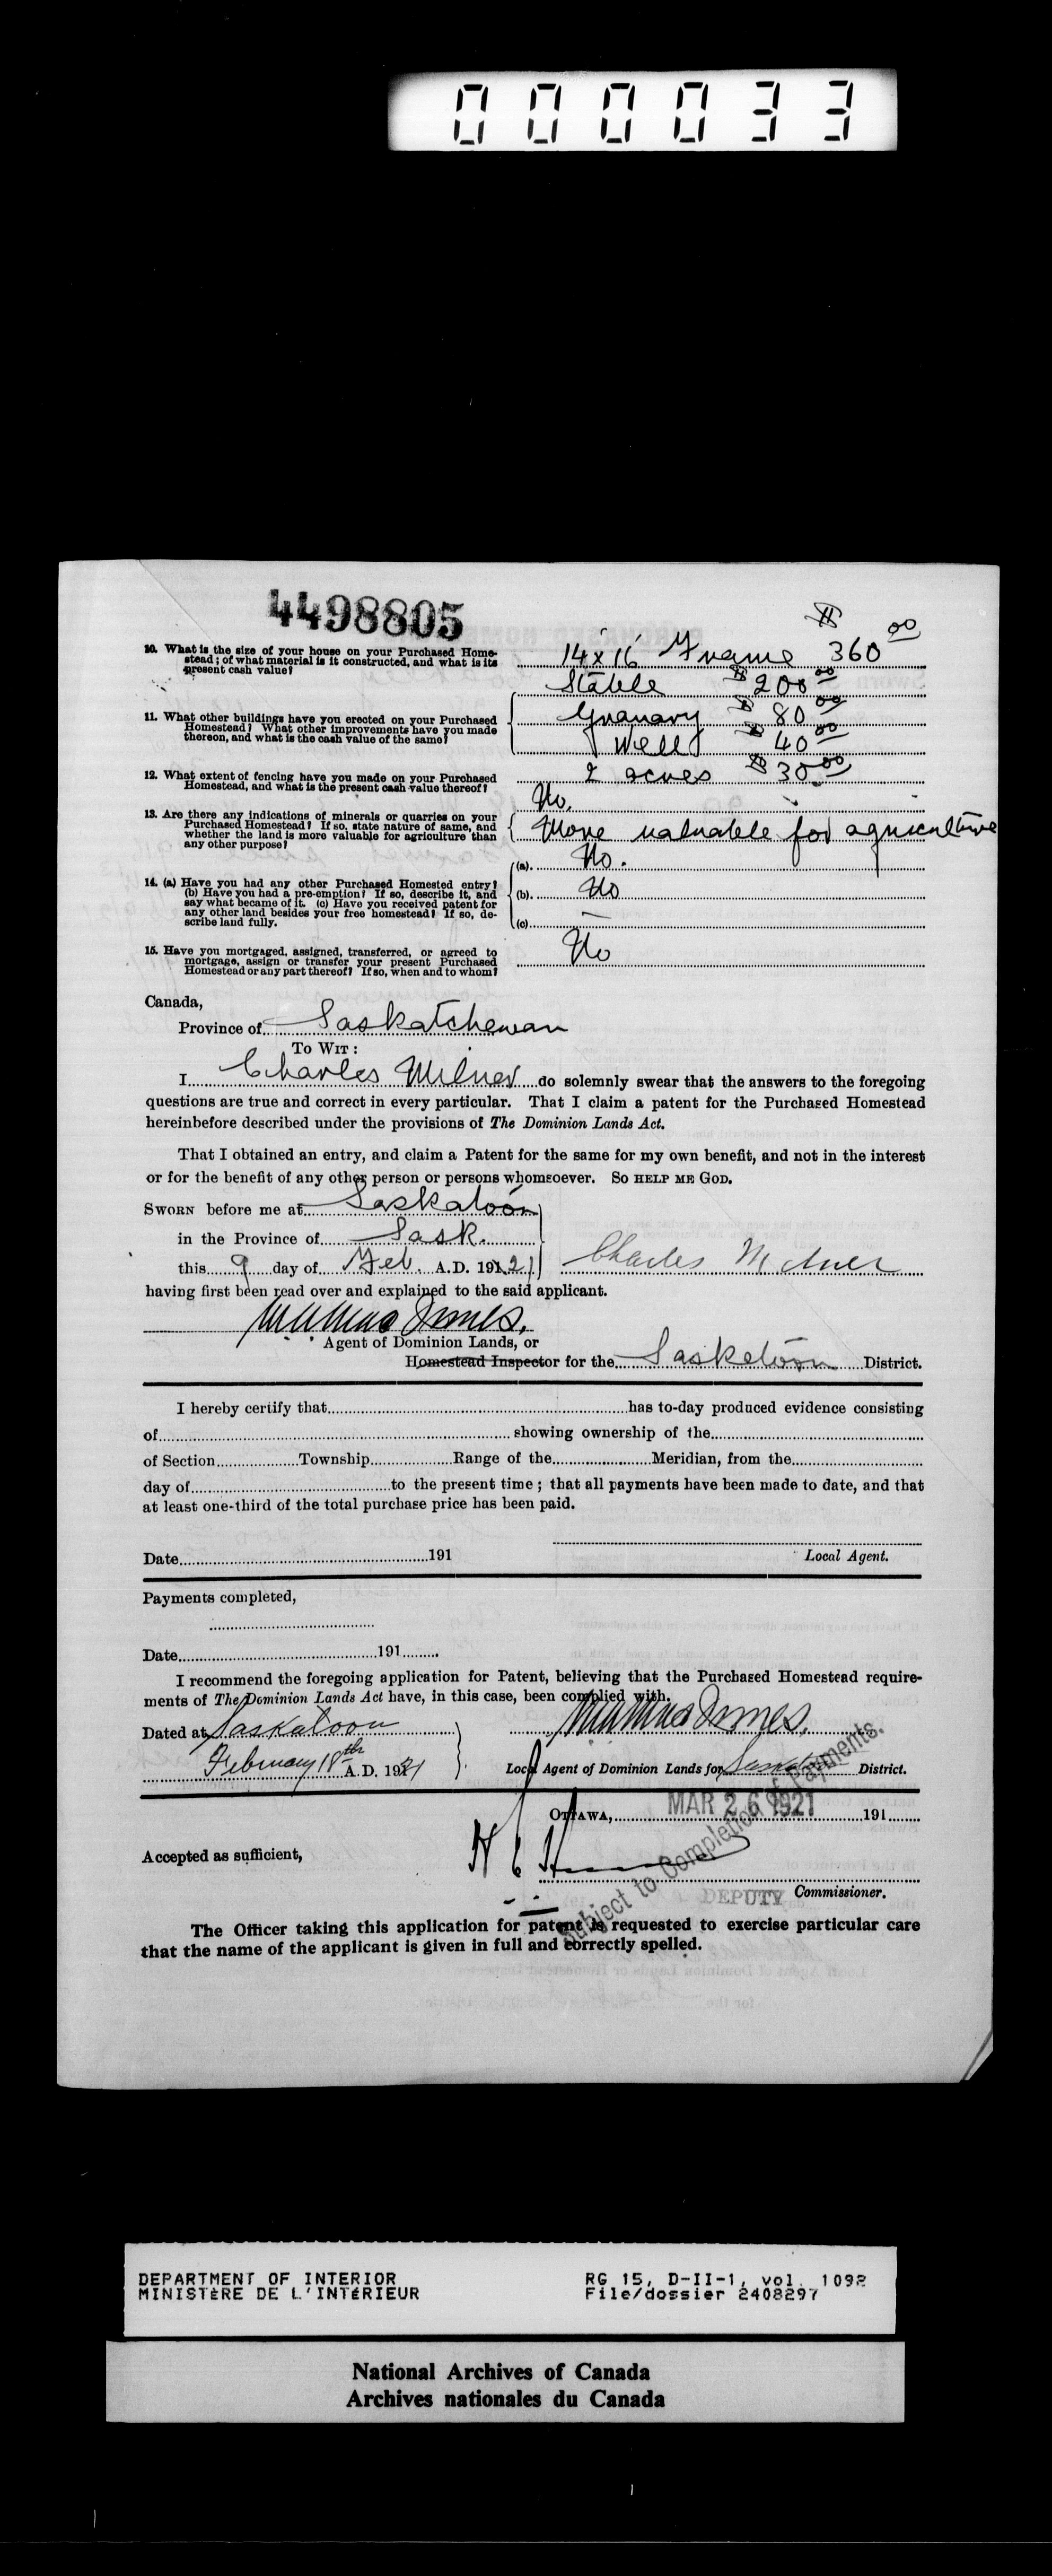 000033
4498805
10. What is the size of your house on your Purchased Home-
stead; of what material is it constructed, and what is its
present cash value?
14 x 16 Frame $ 360 00
Stable $ 200 00
11. What other buildings have you erected on your Purchased
Homestead? What other improvements have you made
thereon, and what is the cash value of the same?
Granary $ 80 00
Well $ 40 00
12. What extent of fencing have you made on your Purchased
Homestead, and what is the present cash value thereof?
2 acres $ 30.00
13. Are there any indications of minerals or quarries on your
Purchased Homestead? If so, state nature of same, and
whether the land is more valuable for agriculture than
any other purpose?
No.
More valuable for agriculture
14. (a) Have you had any other Purchased Homested entry?
(b) Have you had a pre-emption? If so, describe it, and
say what became of it. (c) Have you received patent for
any other land besides your free homestead? If so, de-
scribe land fully.
(a). No.
(b). No
(c) —
15. Have you mortgaged, assigned, transferred, or agreed to
mortgage, assign or transfer your present Purchased
Homestead or any part thereof? If so, when and to whom?
No
Canada,
Province of Saskatchewan
To Wit:
I Charles Milner do solemnly swear that the answers to the foregoing
questions are true and correct in every particular. That I claim a patent for the Purchased Homestead
hereinbefore described under the provisions of The Dominion Lands Act.
That I obtained an entry, and claim a Patent for the same for my own benefit, and not in the interest
or for the benefit of any other person or persons whomsoever. So help me God.
Sworn before me at Saskatoon
in the Province of Sask.
this 9 day of Feb A.D. 1921
Charles Milner
having first been read over and explained to the said applicant.
Agent of Dominion Lands, or
Homestead Inspector for the Saskatoon District.
I hereby certify that has to-day produced evidence consisting
of showing ownership of the
of Section Township Range of the Meridian, from the
day of to the present time; that all payments have been made to date, and that
at least one-third of the total purchase price has been paid.
Date 191
Local Agent.
Payments completed,
Date 191
I recommend the foregoing application for Patent, believing that the Purchased Homestead require-
ments of The Dominion Lands Act have, in this case, been complied with.
Dated at Saskatoon
February 18th A.D. 1921
Local Agent of Dominion Lands for Saskatoon District.
Ottawa, MAR 26 1921 191
Accepted as sufficient,
Subject to Completion of Payments.
DEPUTY Commissioner.
The Officer taking this application for patent is requested to exercise particular care
that the name of the applicant is given in full and correctly spelled.
DEPARTMENT OF INTERIOR
MINISTÈRE DE L'INTÉRIEUR
RG 15, D-II-1, vol. 1092
File/dossier 2408297
National Archives of Canada
Archives nationales du Canada